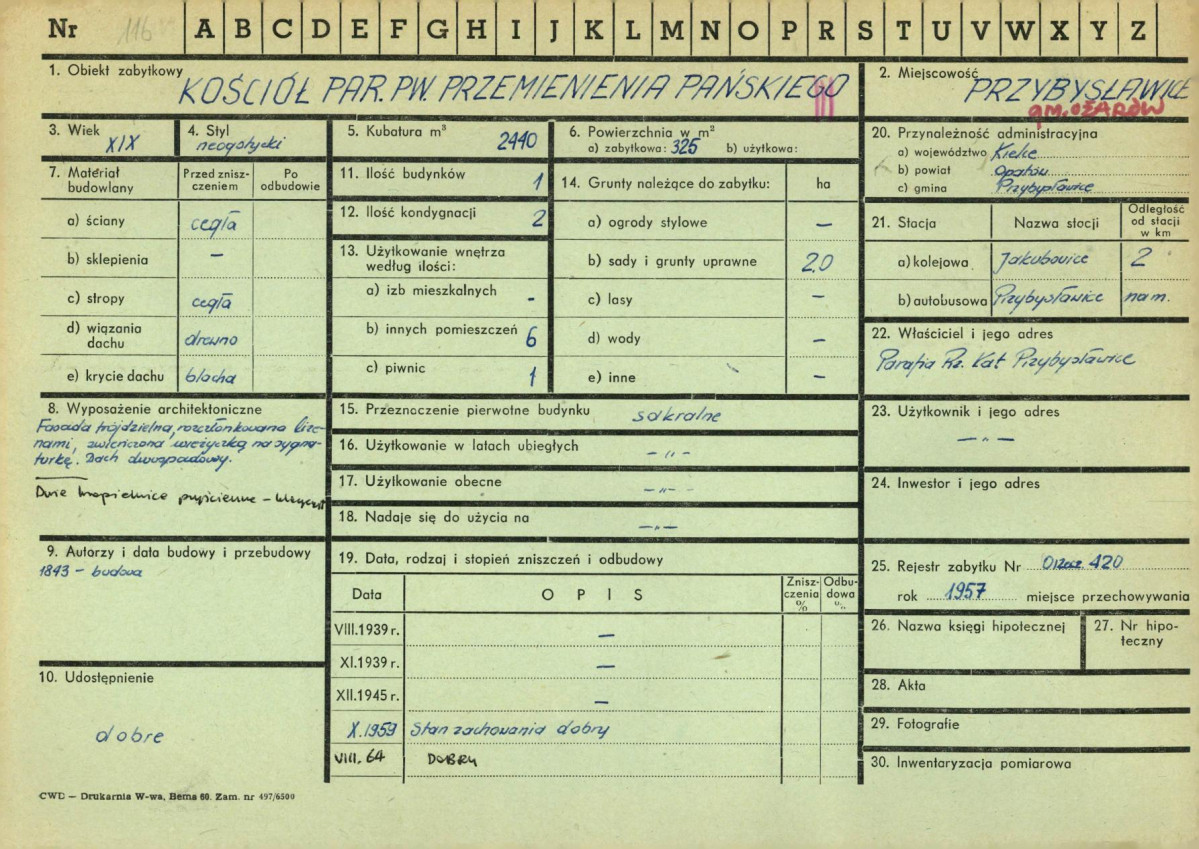 Nr 116 A B C D E F G H I J K L M N O P R S T U V W X Y Z
1. Obiekt zabytkowy KOŚCIÓŁ PAR. PW. PRZEMIENIENIA PAŃSKIEGO
III
2. Miejscowość PRZYBYSŁAWICE
gm. OŻARÓW
3. Wiek XIX
4. Styl neogotycki
5. Kubatura m³ 2440
6. Powierzchnia w m²
a) zabytkowa: 325 b) użytkowa:
7. Materiał budowlany
Przed zniszczeniem
Po odbudowie
a) ściany cegła
b) sklepienia –
c) stropy cegła
d) wiązania dachu drewno
e) krycie dachu blacha
8. Wyposażenie architektoniczne
Fasada trójdzielna, rozczłonkowana lize-
nami, zwieńczona wieżyczką na sygna-
turkę. Dach dwuspadowy.
Dwie kropielnice przyścienne –
9. Autorzy i data budowy i przebudowy
1843 – budowa
10. Udostępnienie
dobre
11. Ilość budynków 1
12. Ilość kondygnacji 2
13. Użytkowanie wnętrza
według ilości:
a) izb mieszkalnych -
b) innych pomieszczeń 6
c) piwnic 1
14. Grunty należące do zabytku: ha
a) ogrody stylowe –
b) sady i grunty uprawne 2,0
c) lasy –
d) wody –
e) inne –
15. Przeznaczenie pierwotne budynku sakralne
16. Użytkowanie w latach ubiegłych –„–
17. Użytkowanie obecne –„–
18. Nadaje się do użycia na –„–
19. Data, rodzaj i stopień zniszczeń i odbudowy
Data OPIS Zniszczenia % Odbudowa %
VIII.1939 r. –
XI.1939 r. –
XII.1945 r. –
X.1959 Stan zachowania dobry
VIII.64 DOBRY
20. Przynależność administracyjna
a) województwo Kielce
b) powiat Opatów
c) gmina Przybysławice
21. Stacja Nazwa stacji Odległość od stacji w km
a) kolejowa Jakubowice 2
b) autobusowa Przybysławice na m.
22. Właściciel i jego adres
Parafia Rz. Kat Przybysławice
23. Użytkownik i jego adres
–„–
24. Inwestor i jego adres
25. Rejestr zabytku Nr 420
rok 1957 miejsce przechowywania
26. Nazwa księgi hipotecznej
27. Nr hipoteczny
28. Akta
29. Fotografie
30. Inwentaryzacja pomiarowa
CWD – Drukarnia W-wa, Bema 60. Zam. nr 497/6500